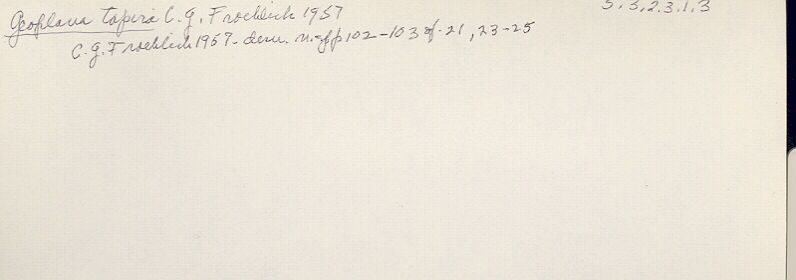 Geoplana tapira C. G. Froehlich 1957 5.3.2.3.1.3
C. G. Froehlich 1957- descr. n. sp p 102-103 f. 21, 23-25